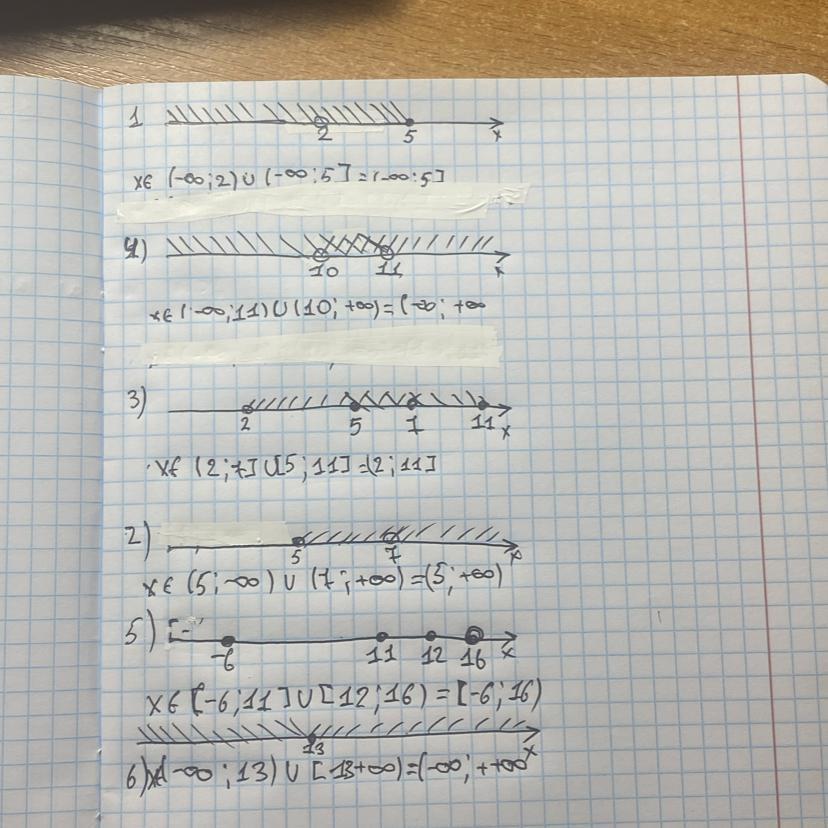 1
2 5 x
x∈ (-∞;2)∪(-∞;5]=(-∞;5]
4)
10 11 x
x∈(-∞;11)∪(10;+∞)=(-∞;+∞
3)
2 5 7 11 x
x∈ (2;7]∪[5;11]=(2;11]
2)
5 7 x
x∈ (5;-∞) ∪ (7;+∞)=(5;+∞)
5) [-
-6 11 12 16 x
x∈[-6;11]∪[12;16)=[-6;16)
13 x
6)x∈(-∞;13)∪[13+∞)=(-∞;++∞